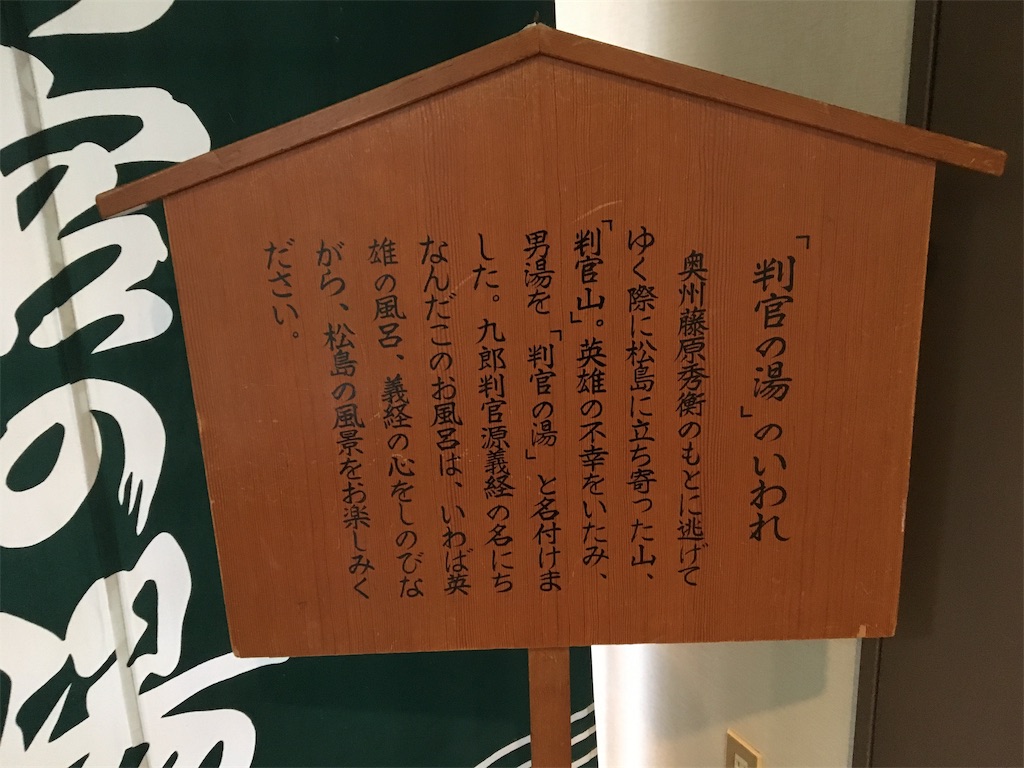 「判官の湯」のいわれ
奥州藤原秀衡のもとに逃げて
ゆく際に松島に立ち寄った山、
「判官山」。英雄の不幸をいたみ、
男湯を「判官の湯」と名付けま
した。九郎判官源義経の名にち
なんだこのお風呂は、いわば英
雄の風呂、義経の心をしのびな
がら、松島の風景をお楽しみく
ださい。
官の湯